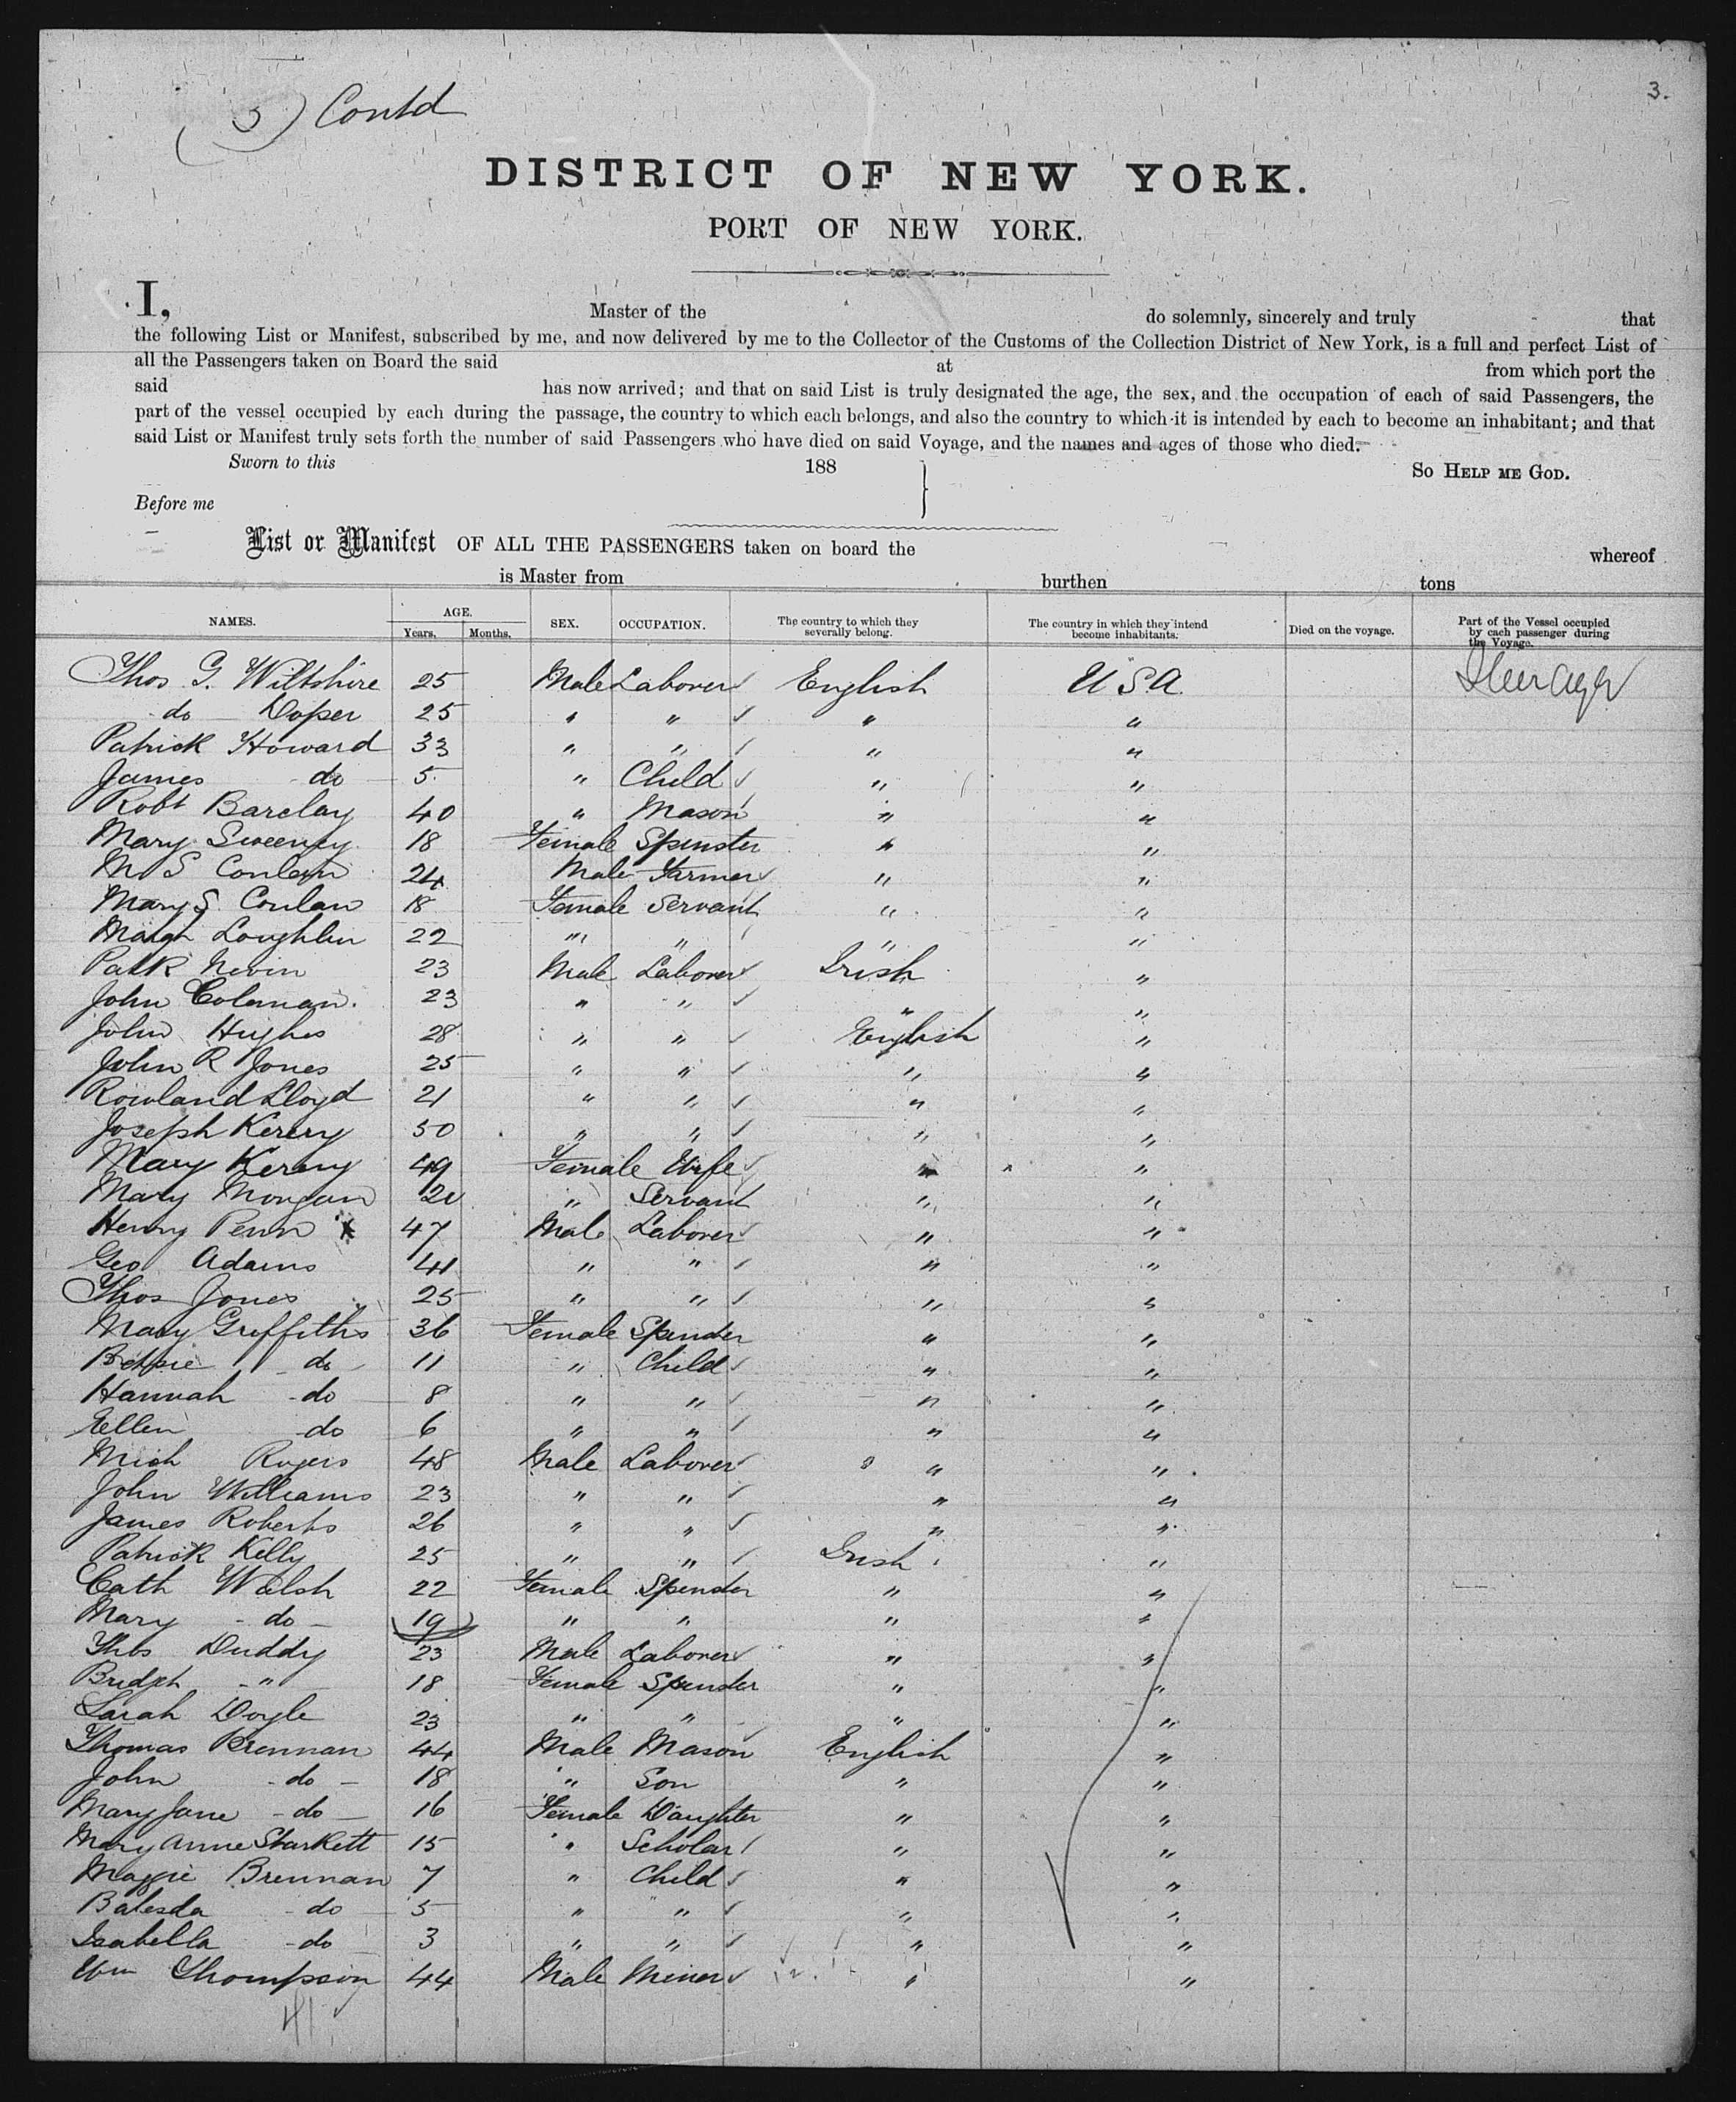 3.
(3) Contd
DISTRICT OF NEW YORK.
PORT OF NEW YORK.
I, Master of the do solemnly, sincerely and truly that
the following List or Manifest, subscribed by me, and now delivered by me to the Collector of the Customs of the Collection District of New York, is a full and perfect List of
all the Passengers taken on Board the said at from which port the
said has now arrived; and that on said List is truly designated the age, the sex, and the occupation of each of said Passengers, the
part of the vessel occupied by each during the passage, the country to which each belongs, and also the country to which it is intended by each to become an inhabitant; and that
said List or Manifest truly sets forth the number of said Passengers who have died on said Voyage, and the names and ages of those who died.
Sworn to this 188 } So HELP ME GOD.
Before me
List or Manifest OF ALL THE PASSENGERS taken on board the whereof
is Master from burthen tons
NAMES. AGE. Years. Months. SEX. OCCUPATION. The country to which they severally belong. The country in which they intend become inhabitants. Died on the voyage. Part of the Vessel occupied by each passenger during the Voyage.
Thos G. Wiltshire 25 Male Laborer English USA Steerage
do 25 " " " "
Patrick Howard 33 " " " "
James do 5 " Child " "
Robt Barclay 40 " Mason " "
Mary Sweeney 18 Female Spinster " "
M S Conlan 24 Male Farmer " "
Mary S Conlan 18 Female Servant " "
Margt Loughlin 22 " " " "
Patk Nevin 23 Male Laborer Irish "
John Coleman. 23 " " " "
John Hughes 28 " " English "
John R Jones 25 " " " "
Rowland Lloyd 21 " " " "
Joseph 50 " " " "
Mary 49 Female Wife " "
Mary Morgan " Servant " "
Henry Penn x 47 Male Laborer " "
Geo Adams 41 " " " "
Thos Jones 25 " " " "
Mary Griffiths 36 Female Spinster " "
Betsie do 11 " Child " "
Hannah do 8 " " " "
Ellen do 6 " " " "
Mich Rogers 48 Male Laborer " "
John Williams 23 " " " "
James Roberts 26 " " " "
Patrick Kelly 25 " " Irish "
Cath Walsh 22 Female Spinster " "
Mary do 19 " " " "
Thos Duddy 23 Male Laborer " "
Bridgt " 18 Female Spinster " "
Sarah Doyle 23 " " " "
Thomas Brennan 44 Male Mason English "
John do 18 " Son " "
Mary Jane do 16 Female Daughter " "
Mary Anne Starkett 15 " Scholar " "
Maggie Brennan 7 " Child " "
do 5 " " " "
Isabella do 3 " " " "
Wm Thompson 44 Male Miner " "
41